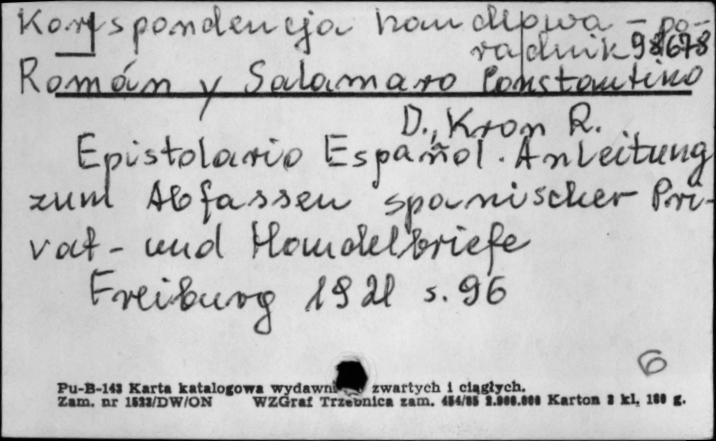 Korespondencja handlowa - po-
radnik 98678
Román y Salamaro Constantino
D., Kron R.
Epistolario Español. Anleitung
zum Abfassen spanischer Pri-
vat- und Handelbriefe
Freiburg 1921 s. 96
6
Pu-B-143 Karta katalogowa wydawn zwartych i ciągłych.
Zam. nr 1523/DW/ON WZGraf Trzebnica zam. 454/85 2.000.000 Karton 3 kl. 180 g.